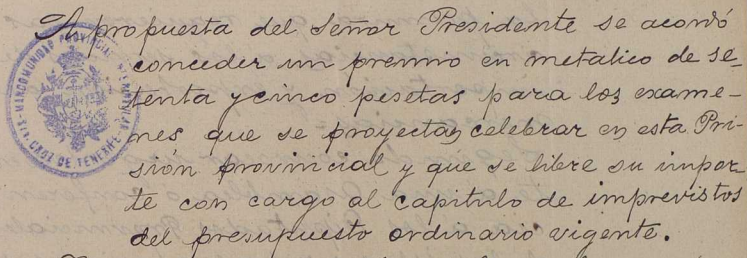 A propuesta del Señor Presidente se acordó
conceder un premio en metalico de se-
tenta y cinco pesetas para los exame-
nes que se proyectan celebrar en esta Pri-
sión provincial y que se libre su impor-
te con cargo al capitulo de imprevistos
del presupuesto ordinario vigente.
MANCOMUNIDAD PROVINCIAL INTERINSULAR
STA. CRUZ DE TENERIFE